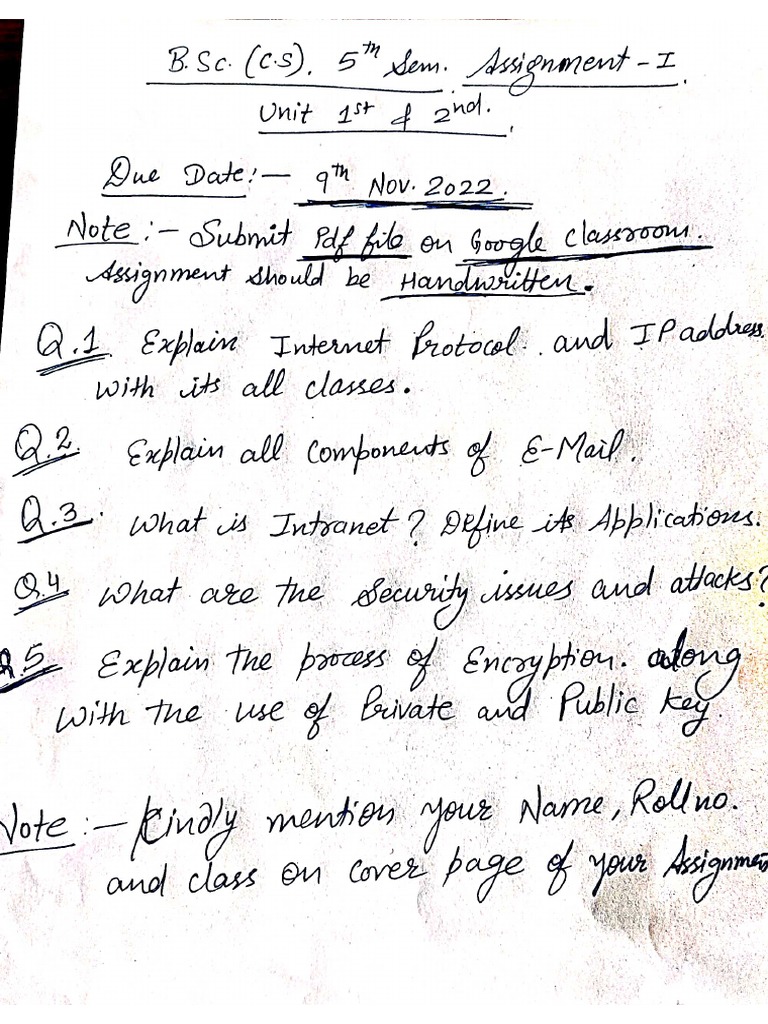 B.Sc. (C.S). 5th Sem. Assignment - I.
Unit 1st & 2nd.
Due Date:- 9th Nov. 2022.
Note:- Submit Pdf file on Google Classroom.
Assignment should be Handwritten.
Q.1 Explain Internet Protocol. and IP address
with its all classes.
Q.2. Explain all components of E-Mail.
Q.3. What is Intranet? Define its Applications.
Q.4 What are the Security issues and attacks?
Q.5 Explain the process of Encryption. along
with the use of Private and Public Key.
Note:- Kindly mention your Name, Roll no.
and class on cover page of your Assignment